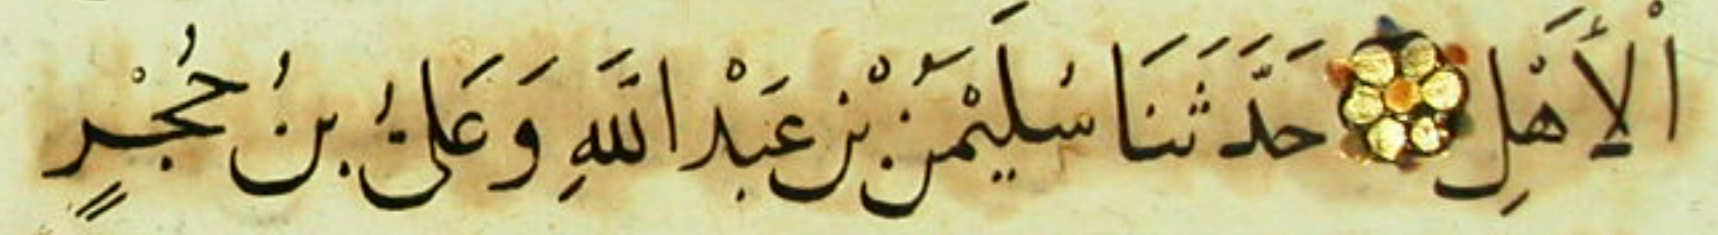 الْأَهْلِ حَدَّثَنَا سُلَيْمَنُ بْنُ عَبْدِ اللَّهِ وَعَلِيُّ بْنُ حُجْرٍ